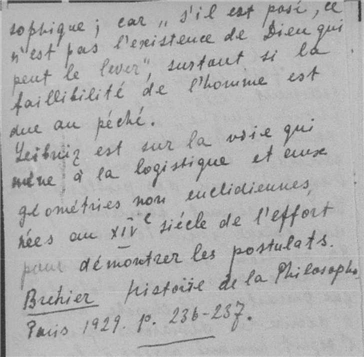 sophique; car „s'il est posé, ce
n'est pas l'existence de Dieu qui
peut le lever", surtout si la
faillibilité de l'homme est
due au péché.
Leibniz est sur la voie qui
mène à la logistique et aux
géométries non euclidiennes,
nées au XIVe siécle de l'effort
pour démontrer les postulats.
Brehier Histoire de la Philosoph.
Paris 1929. p. 236-237.